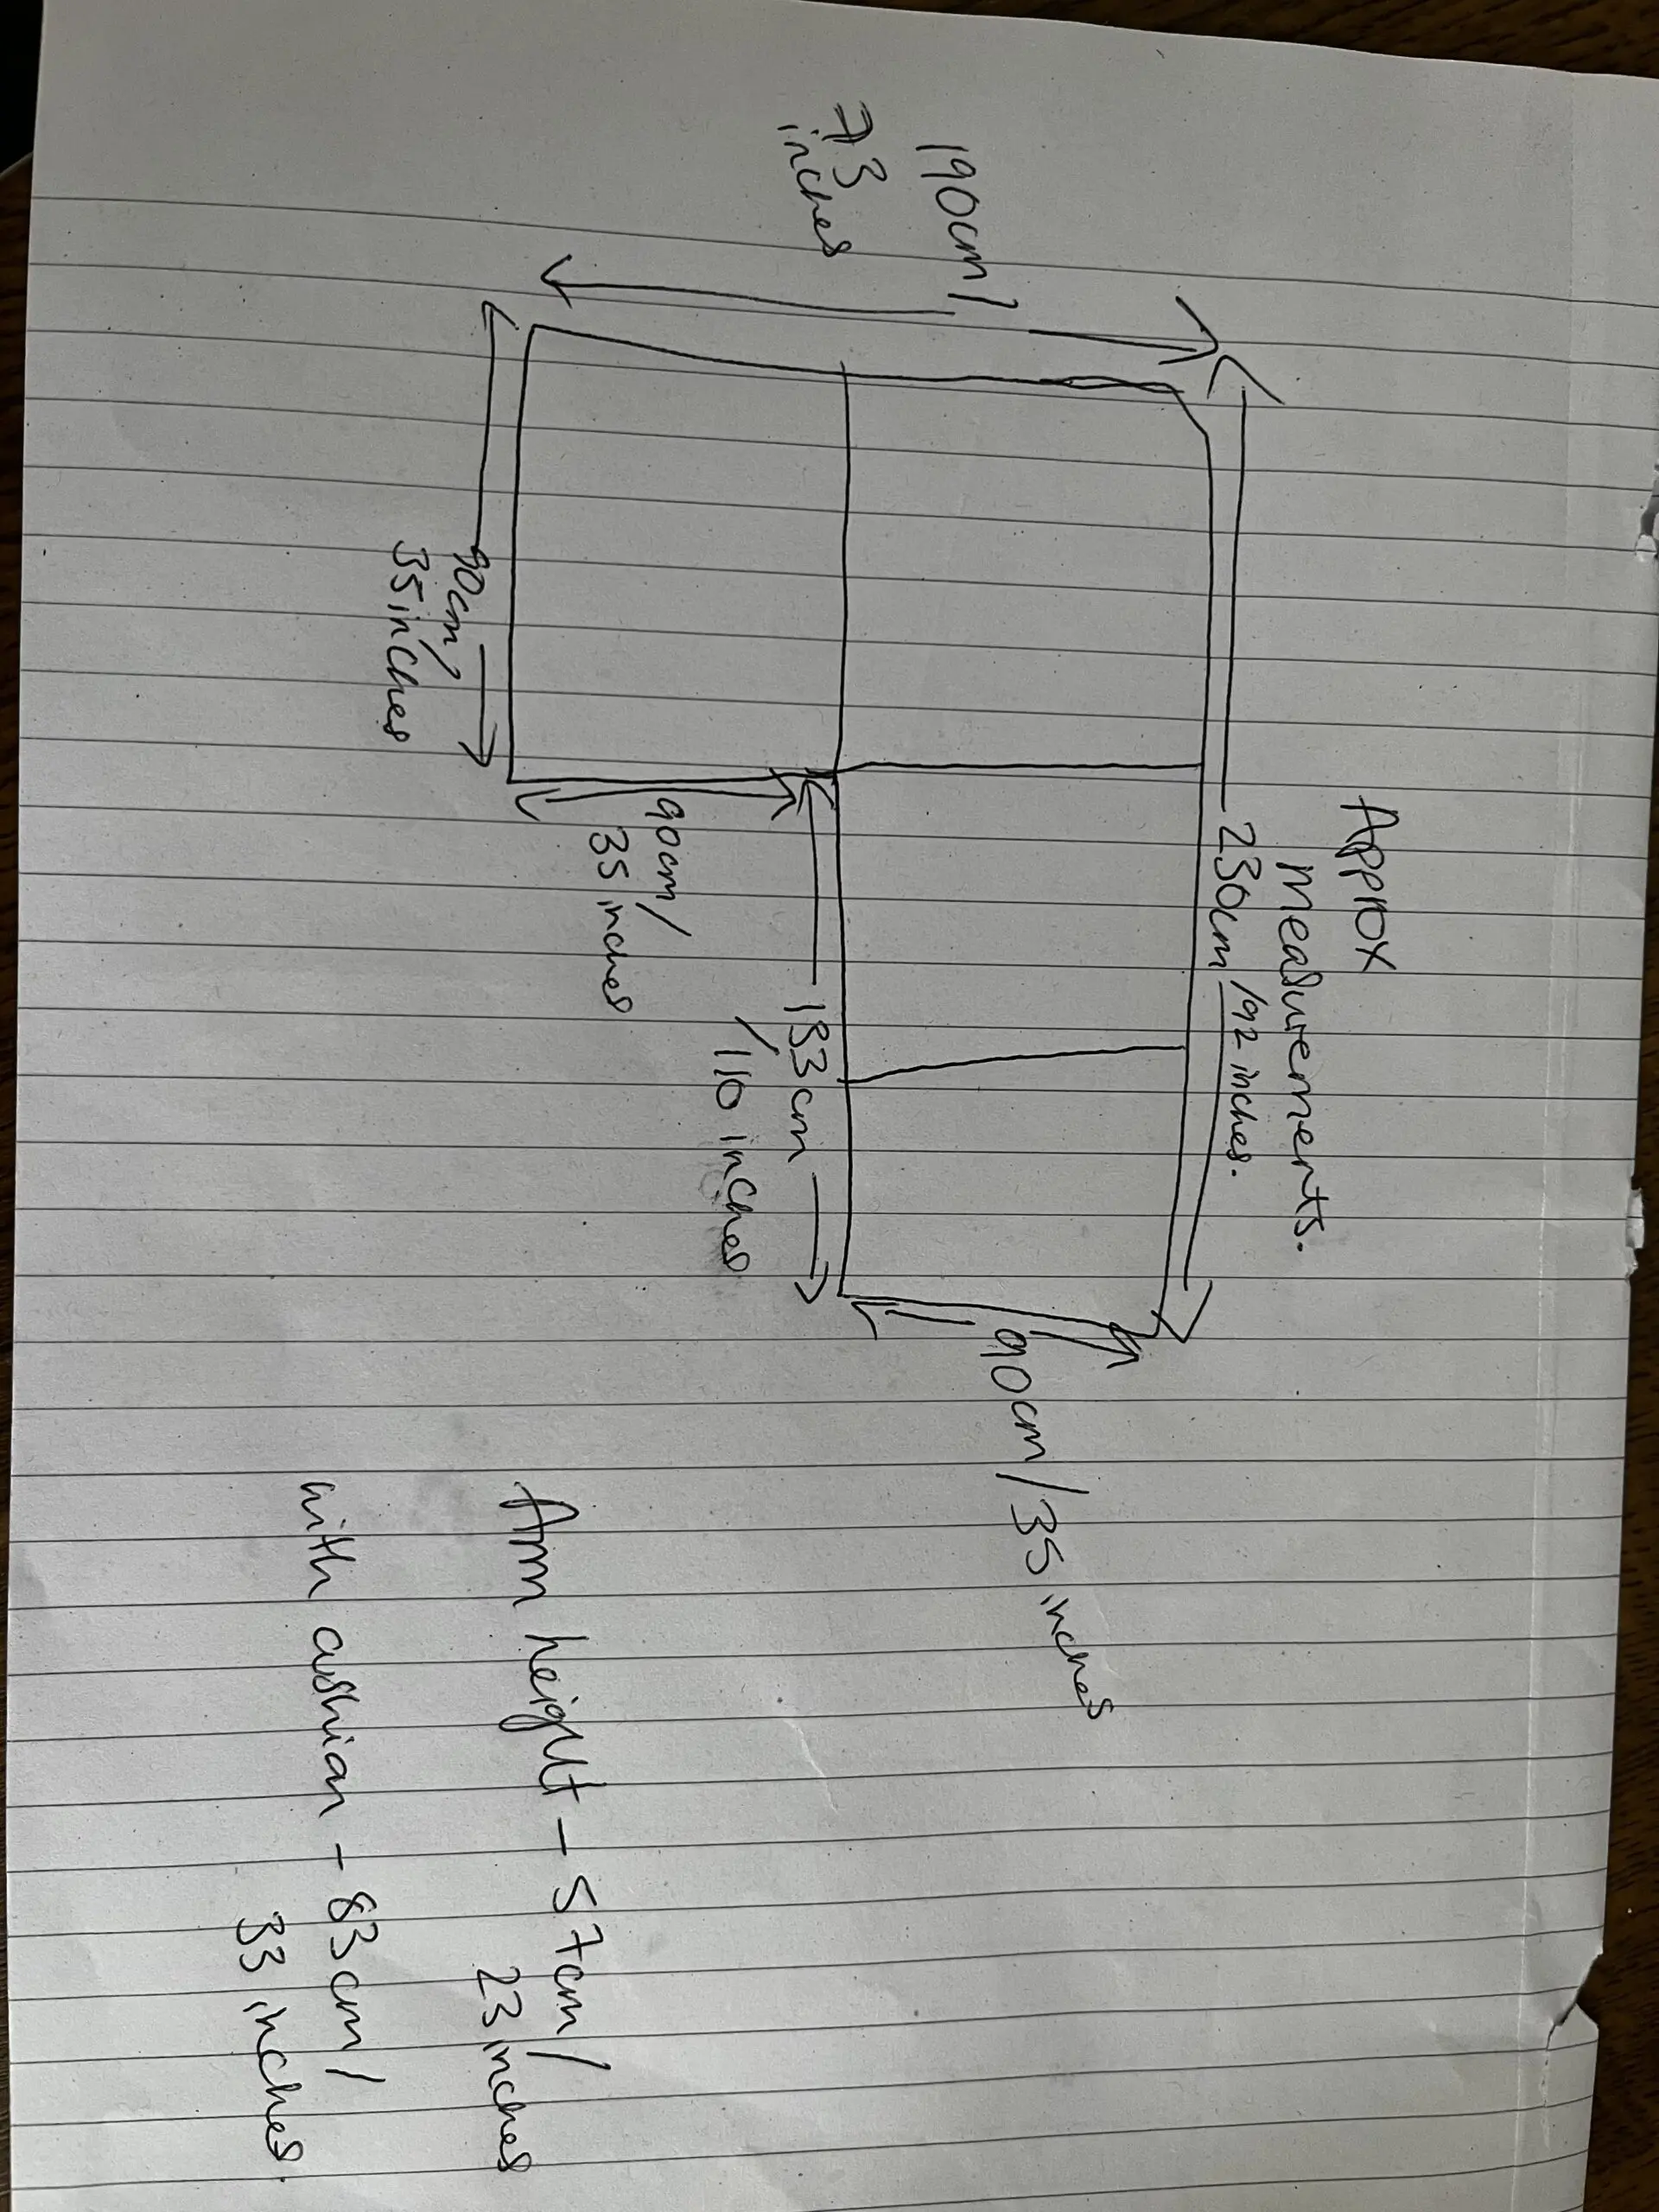 Approx
measurements.
230cm /92 inches.
190cm/
73
inches
90cm/35 inches
183cm
/110 inches
90cm/
35 inches
90cm/
35 inches
Arm height - 57cm/
23 inches
with cushion - 83cm/
33 inches.